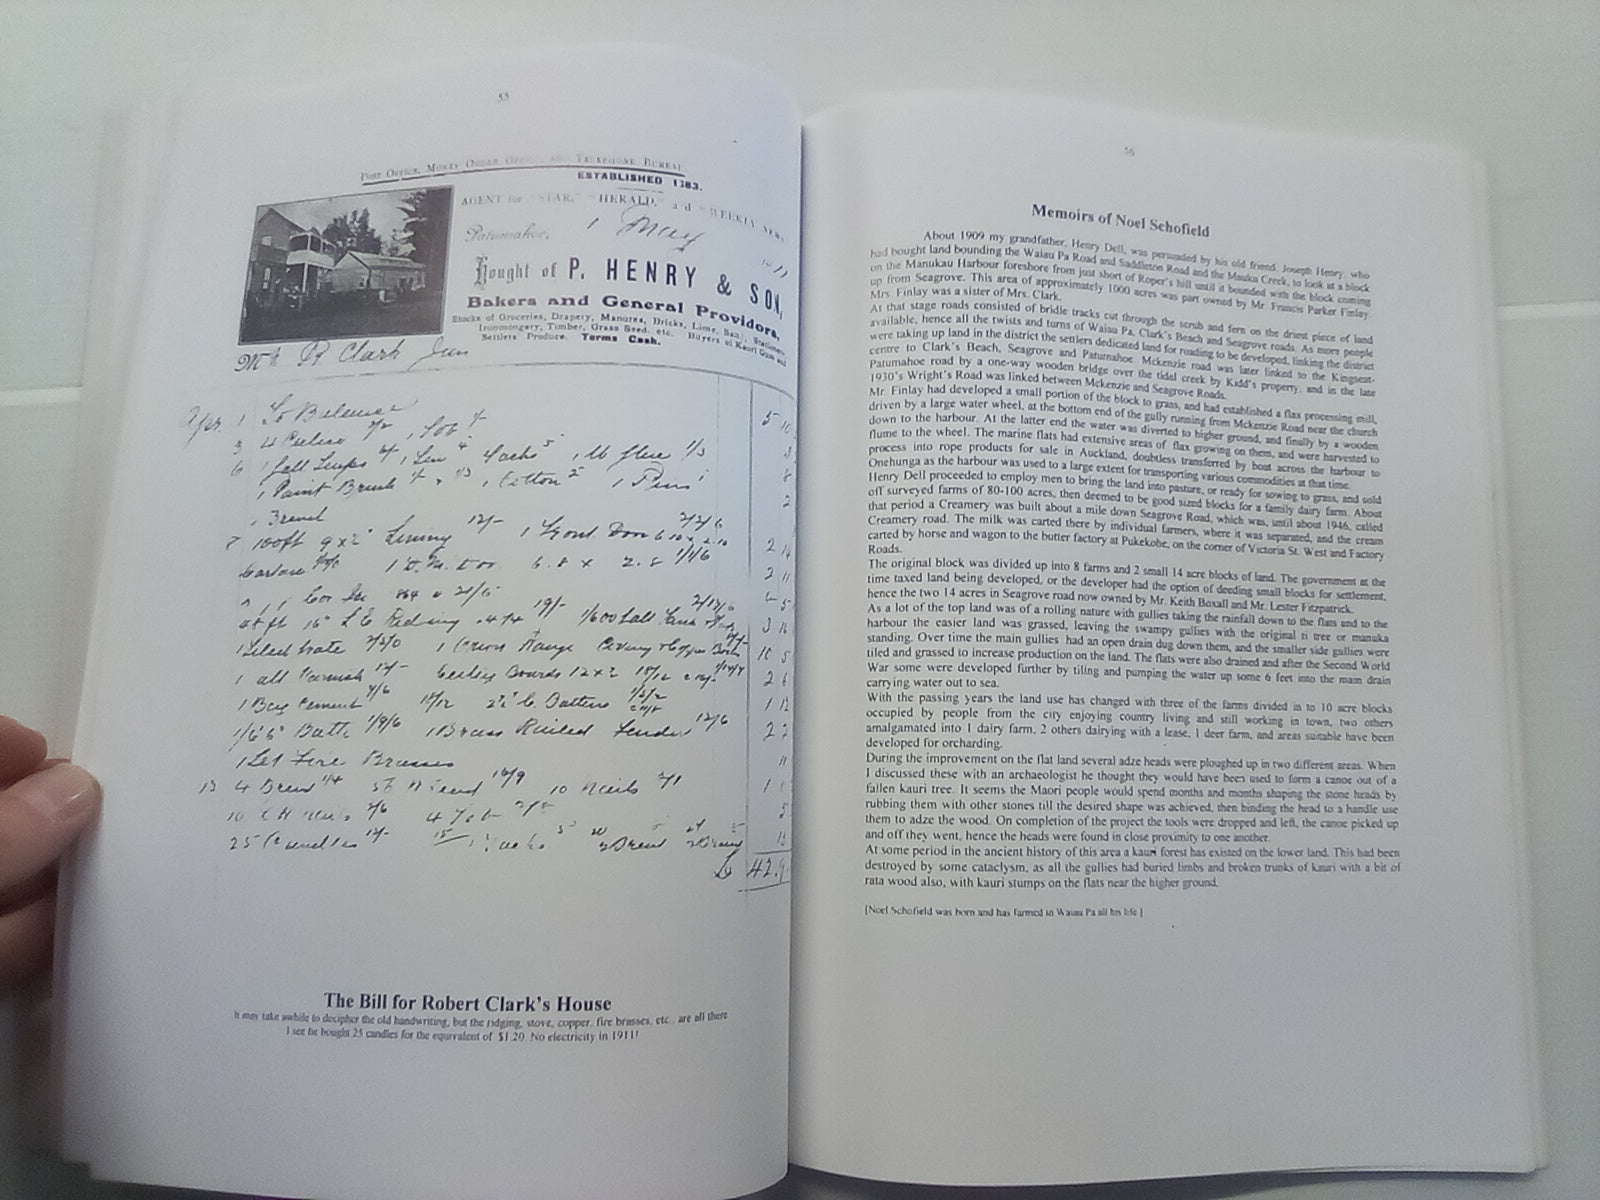 55
POST OFFICE, MONEY ORDER OFFICE, AND TELEPHONE BUREAU.
ESTABLISHED 1883.
AGENT for "STAR," "HERALD," and "WEEKLY NEWS
Patumahoe, 1 May 1911
Bought of P. HENRY & SON,
Bakers and General Providors.
Stocks of Groceries, Drapery, Manures, Bricks, Lime, Sand, Stationery
Ironmongery, Timber, Grass Seed, etc. Buyers of Kauri Gum and
Settlers' Produce. Terms Cash.
Mr R Clark Jun
Apr. 1 To Balance 5 10
3
6
1 Paint Brush 1 Cotton 1 Pins 2
1 Bread
7 100ft 9 x 2 Lining 12/- 1 Front Door 2/2/6
2 14
6.8 x 2.8
2 11
16" 19/-
3 16
1 Orion Range 10 5
12 x 2 2 6
1 Bag Cement 7/6 1 12
1/6'6" Bath 1/9/6 1 Brass Railed Fender 12/6 2 2
1 Set Fire Brasses 11
13 4 Bread 1/4 10 Nails
25 Candles 12/-
£ 42.9
The Bill for Robert Clark's House
It may take awhile to decipher the old handwriting, but the ridging, stove, copper, fire brasses, etc., are all there
I see he bought 25 candles for the equivalent of $1.20. No electricity in 1911!
56
Memoirs of Noel Schofield
About 1909 my grandfather, Henry Dell, was persuaded by his old friend, Joseph Henry, who
had bought land bounding the Waiau Pa Road and Saddleton Road and the Mauku Creek, to look at a block
on the Manukau Harbour foreshore from just short of Roper's hill until it bounded with the block coming
up from Seagrove. This area of approximately 1000 acres was part owned by Mr. Francis Parker Finlay.
Mrs. Finlay was a sister of Mrs. Clark.
At that stage roads consisted of bridle tracks cut through the scrub and fern on the driest piece of land
available, hence all the twists and turns of Waiau Pa, Clark's Beach and Seagrove roads. As more people
were taking up land in the district the settlers dedicated land for roading to be developed, linking the district
centre to Clark's Beach, Seagrove and Patumahoe. Mckenzie road was later linked to the Kingseat-
Patumahoe road by a one-way wooden bridge over the tidal creek by Kidd's property, and in the late
1930's Wright's Road was linked between Mckenzie and Seagrove Roads.
Mr. Finlay had developed a small portion of the block to grass, and had established a flax processing mill,
driven by a large water wheel, at the bottom end of the gully running from Mckenzie Road near the church
down to the harbour. At the latter end the water was diverted to higher ground, and finally by a wooden
flume to the wheel. The marine flats had extensive areas of flax growing on them, and were harvested to
process into rope products for sale in Auckland, doubtless transferred by boat across the harbour to
Onehunga as the harbour was used to a large extent for transporting various commodities at that time.
Henry Dell proceeded to employ men to bring the land into pasture, or ready for sowing to grass, and sold
off surveyed farms of 80-100 acres, then deemed to be good sized blocks for a family dairy farm. About
that period a Creamery was built about a mile down Seagrove Road, which was, until about 1946, called
Creamery road. The milk was carted there by individual farmers, where it was separated, and the cream
carted by horse and wagon to the butter factory at Pukekohe, on the corner of Victoria St. West and Factory
Roads.
The original block was divided up into 8 farms and 2 small 14 acre blocks of land. The government at the
time taxed land being developed, or the developer had the option of deeding small blocks for settlement,
hence the two 14 acres in Seagrove road now owned by Mr. Keith Boxall and Mr. Lester Fitzpatrick.
As a lot of the top land was of a rolling nature with gullies taking the rainfall down to the flats and to the
harbour the easier land was grassed, leaving the swampy gullies with the original ti tree or manuka
standing. Over time the main gullies had an open drain dug down them, and the smaller side gullies were
tiled and grassed to increase production on the land. The flats were also drained and after the Second World
War some were developed further by tiling and pumping the water up some 6 feet into the main drain
carrying water out to sea.
With the passing years the land use has changed with three of the farms divided in to 10 acre blocks
occupied by people from the city enjoying country living and still working in town, two others
amalgamated into 1 dairy farm, 2 others dairying with a lease, 1 deer farm, and areas suitable have been
developed for orcharding.
During the improvement on the flat land several adze heads were ploughed up in two different areas. When
I discussed these with an archaeologist he thought they would have been used to form a canoe out of a
fallen kauri tree. It seems the Maori people would spend months and months shaping the stone heads by
rubbing them with other stones till the desired shape was achieved, then binding the head to a handle use
them to adze the wood. On completion of the project the tools were dropped and left, the canoe picked up
and off they went, hence the heads were found in close proximity to one another.
At some period in the ancient history of this area a kauri forest has existed on the lower land. This had been
destroyed by some cataclysm, as all the gullies had buried limbs and broken trunks of kauri with a bit of
rata wood also, with kauri stumps on the flats near the higher ground.
[Noel Schofield was born and has farmed in Waiau Pa all his life ]